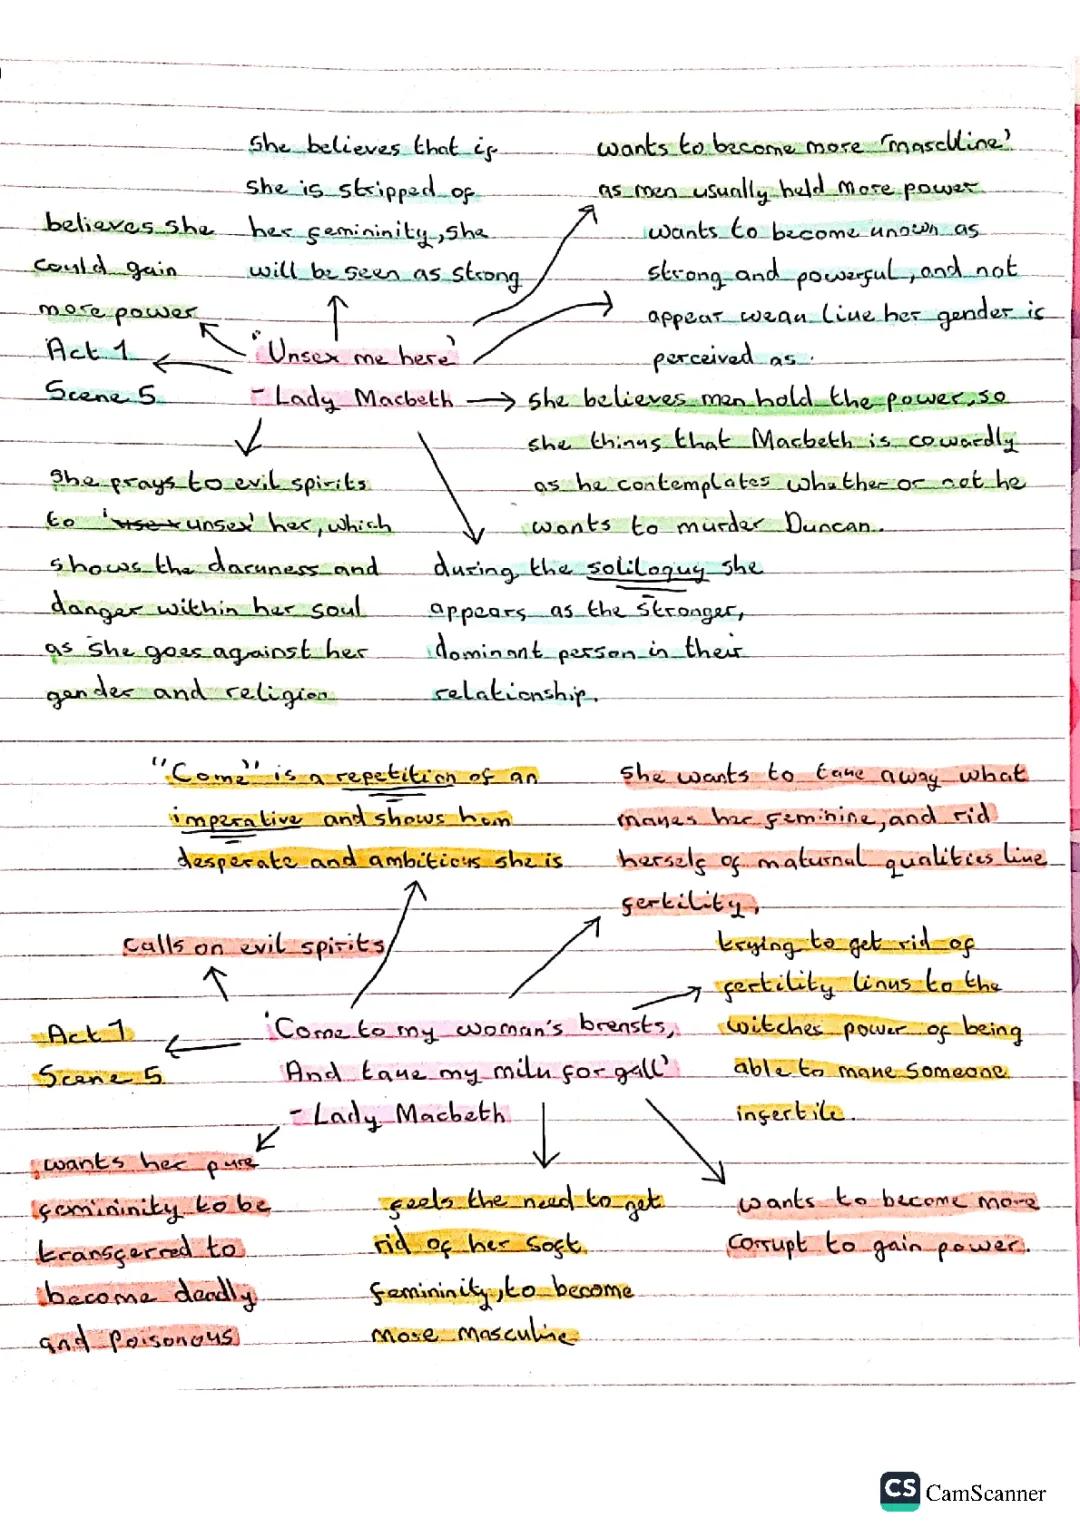 She believes that if
she is stripped of
her femininity, she
will be seen as strong
wants to become more 'masculine'
as men usually held more power
believes she
could gain
more power
wants to become known as
strong and powerful, and not
appear weak like her gender is
perceived as.
Act 1
Scene 5
'Unsex me here'
- Lady Macbeth
she believes men hold the power, so
she thinks that Macbeth is cowardly
as he contemplates whether or not he
wants to murder Duncan.
She prays to evil spirits
to 'unsex' her, which
shows the darkness and
danger within her soul
as she goes against her
gender and religion
during the soliloquy she
appears as the stronger,
dominant person in their
relationship.
"Come" is a repetition of an
imperative and shows how
desperate and ambitious she is
She wants to take away what
makes her feminine, and rid
herself of maturnal qualities like
fertility.
calls on evil spirits
trying to get rid of
fertility links to the
witches power of being
able to make someone
infertile.
Act 1
Scene 5
'Come to my woman's breasts,
And take my milk for gall'
- Lady Macbeth
wants her pure
femininity to be
transferred to
become deadly
and poisonous
feels the need to get
rid of her soft
femininity, to become
more masculine
wants to become more
corrupt to gain power.
CS CamScanner